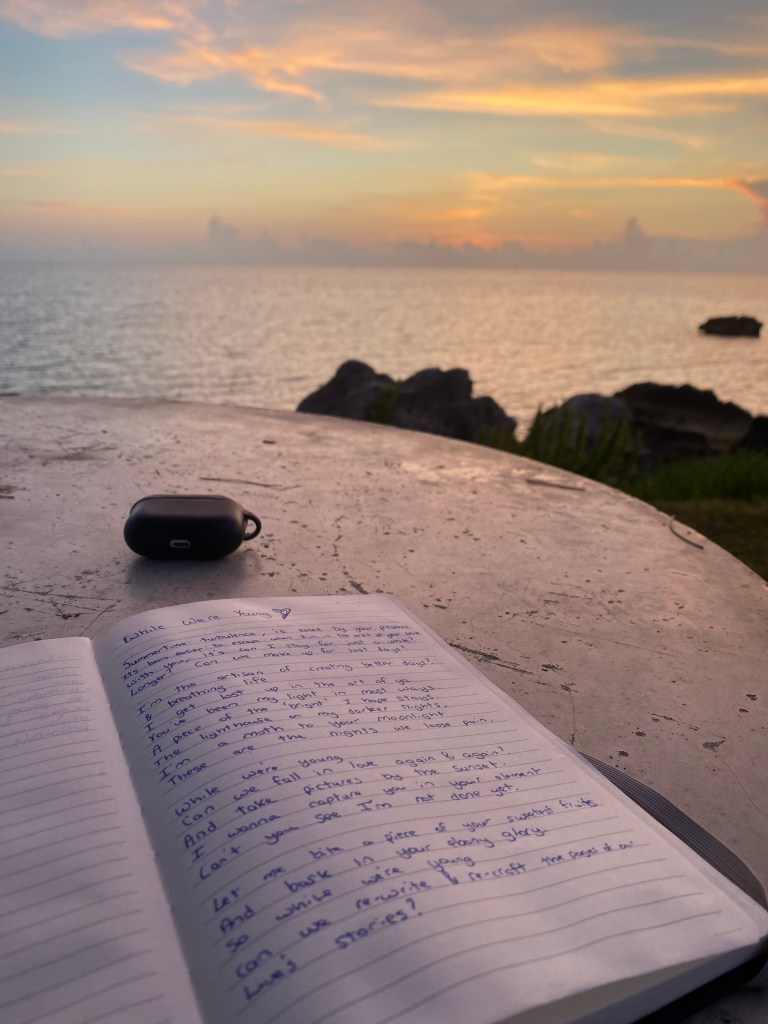 While We're Young ♡
Summertime turbulence, is eased by your presence
It's been easier to escape when I'm in the eye of your
With you, it's can I stay for just a while
Longer? Can we make up for lost days?
I'm the artisan of creating better days?
& breathing life
I get lost up in the art of ya
You've been my light in most ways
A piece of the 'bright' I hope stays
The lighthouse on my darker nights.
I'm a moth to your moonlight
These are the nights we loose pain.
While we're young
Can we fall in love again & again?
And take pictures by the sunset.
I wanna capture you in your element
Can't you see I'm not done yet.
Let me bite a piece of your sweetest fruits
And bask in your glory.
So while we're young
Can we re-write & re-craft the pages of our
Lives' stories?